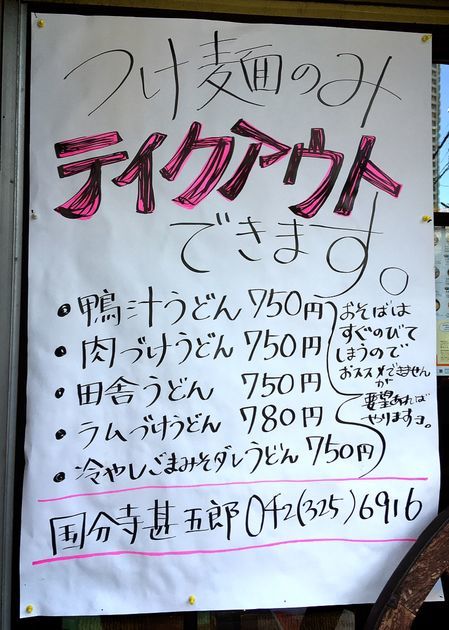 つけ麺のみ
テイクアウト
できます。
・鴨汁うどん 750円
・肉づけうどん 750円
・田舎うどん 750円
・ラムづけうどん 780円
・冷やしごまみそダレうどん 750円
おそばは
すぐのびて
しまうので
おススメできません
が
要望あれば
やりますヨ。
国分寺甚五郎 042(325)6916